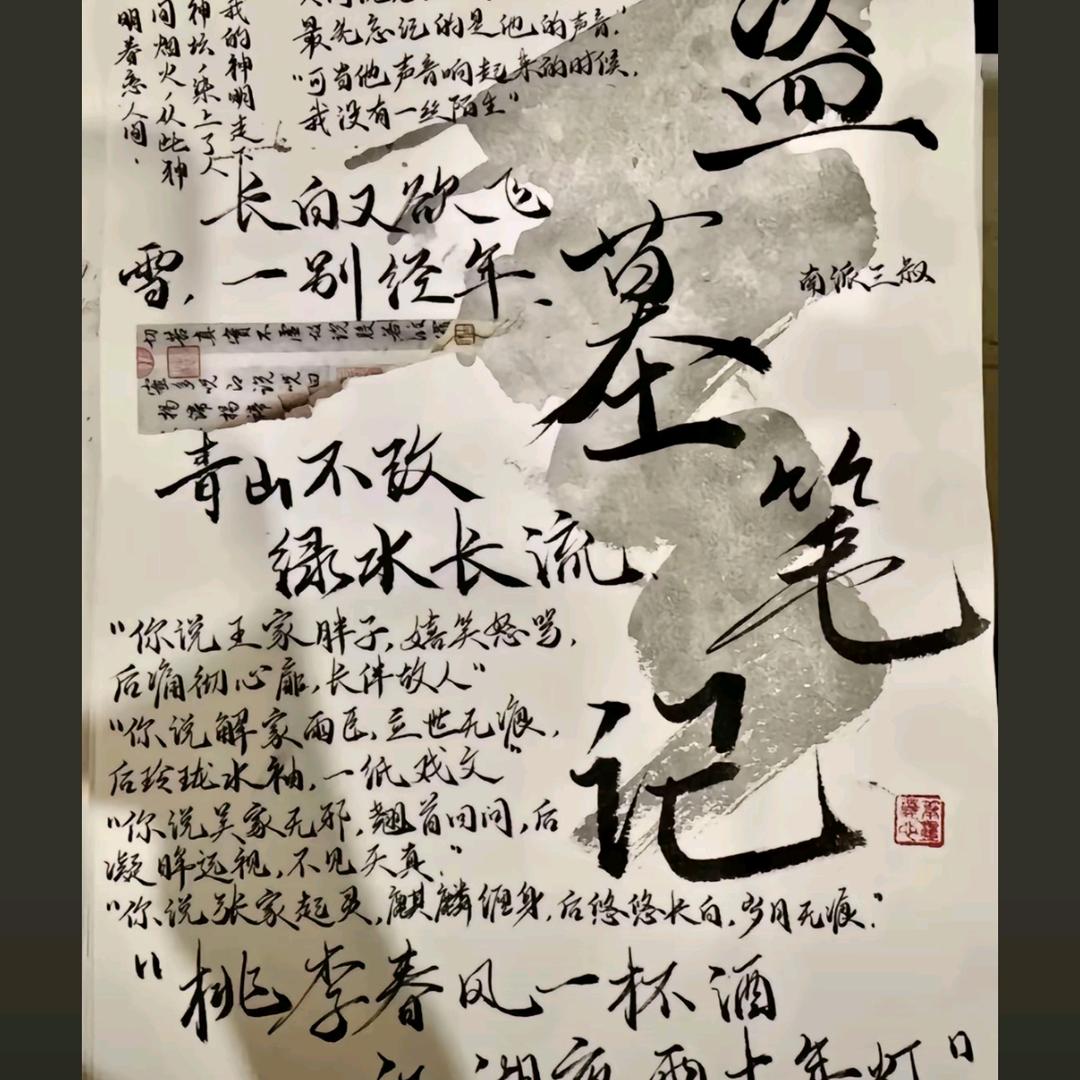 我的神明走下
神坛,染上了人
间烟火,从此神
明眷恋人间.
最先忘记的是他的声音."
"可当他声音响起来的时候,
我没有一丝陌生"
盗
墓
笔
记
南派三叔
长白又欲飞
雪,一别经年.
切苦真實不虛故說般若波羅
蜜多咒即說咒曰
揭諦揭諦
青山不改
绿水长流.
"你说王家胖子,嬉笑怒骂,
后痛彻心扉,长伴故人"
"你说解家雨臣,立世无痕,
后玲珑水袖,一纸戏文"
"你说吴家无邪,翘首回问,后
凝眸远视,不见天真."
"你说张家起灵,麒麟缠身,后悠悠长白,岁月无痕."
"桃李春风一杯酒
江湖夜雨十年灯"